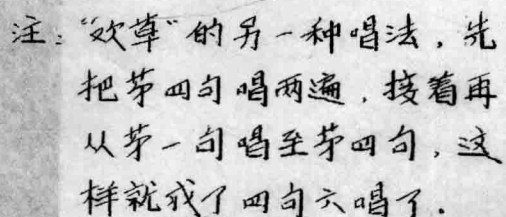 注："欢草"的另一种唱法，先
把茅四句唱两遍，接着再
从茅一句唱至茅四句，这
样就成了四句六唱了.